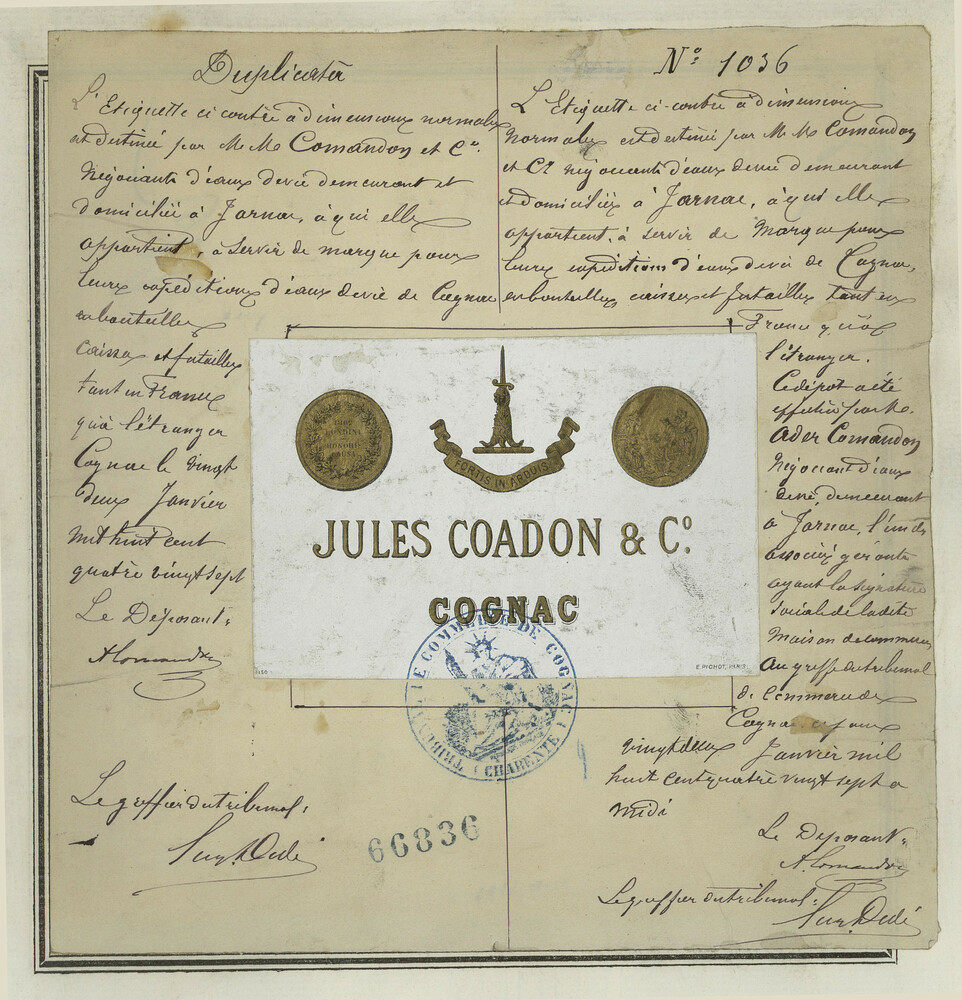 Duplicata
L'Etiquette ci contre à dimensions normales
est destinée par M. M. Comandon et Cie.
Négociants d'eaux de vie demeurant et
domiciliés à Jarnac, à qui elle
appartient, à servir de marque pour
leurs expéditions d'eaux de vie de Cognac
en bouteilles
caisses et futailles
tant en France
qu'à l'étranger
Cognac le vingt
deux Janvier
mil huit cent
quatre vingt sept
Le Déposant:
Le greffier du tribunal:
No 1036
L'Etiquette ci-contre à dimensions
normales est destinée par M. M. Comandon
et Cie négociants d'eaux de vie demeurant
et domiciliés à Jarnac, à qui elle
appartient, à servir de marque pour
leurs expéditions d'eaux de vie de Cognac,
en bouteilles, caisses et futailles tant en
France qu'à
l'étranger.
Ce dépot a été
effectué par M.
Ader Comandon
Négociant d'eaux
de vie, demeurant
à Jarnac, l'un des
associés gérants
ayant la signature
sociale de la dite
maison de commerce
Au greffe du tribunal
de commerce de
Cognac, ce jour
vingt deux Janvier mil
huit cent quatre vingt sept a
midi
Le Déposant:
Le greffier du tribunal:
1862
LONDINI
HONORIS
CAUSA
FORTIS IN ARDUIS
JULES COADON & Co.
COGNAC
E. PICHOT, PARIS
TRIBUNAL DE COMMERCE DE COGNAC
(CHARENTE)
66836